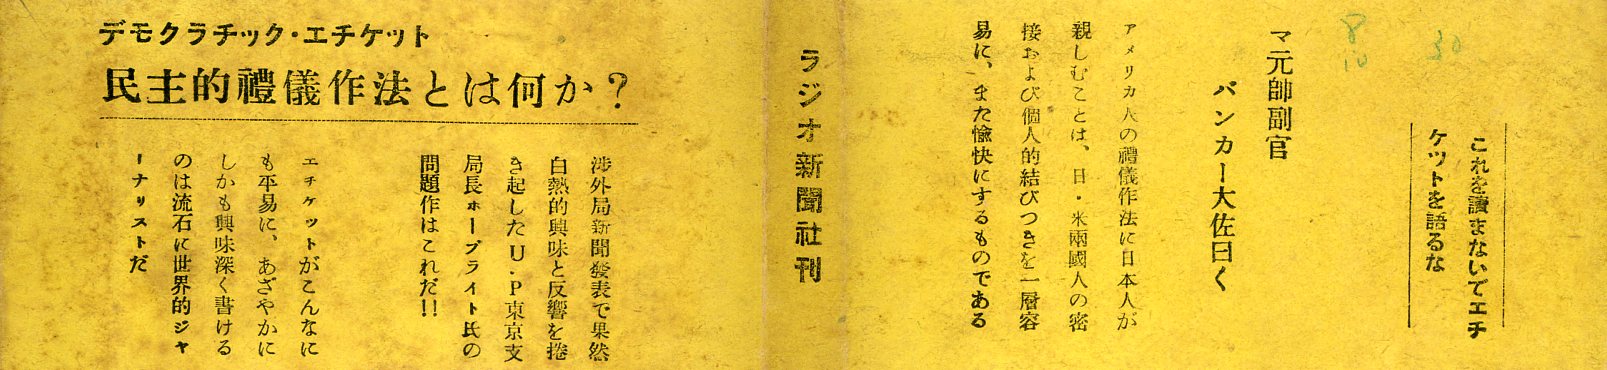 これを讀まないでエチ
ケツトを語るな
マ元帥副官
バンカー大佐曰く
アメリカ人の禮儀作法に日本人が
親しむことは、日・米兩國人の密
接および個人的結びつきを一層容
易に、また愉快にするものである
8/10
30
ラジオ新聞社刊
デモクラチック・エチケット
民主的禮儀作法とは何か?
渉外局新聞發表で果然
白熱的興味と反響を捲
き起したU・P東京支
局長ホーブライト氏の
問題作はこれだ!!
エチケットがこんなに
も平易に、あざやかに
しかも興味深く書ける
のは流石に世界的ジャ
ーナリストだ